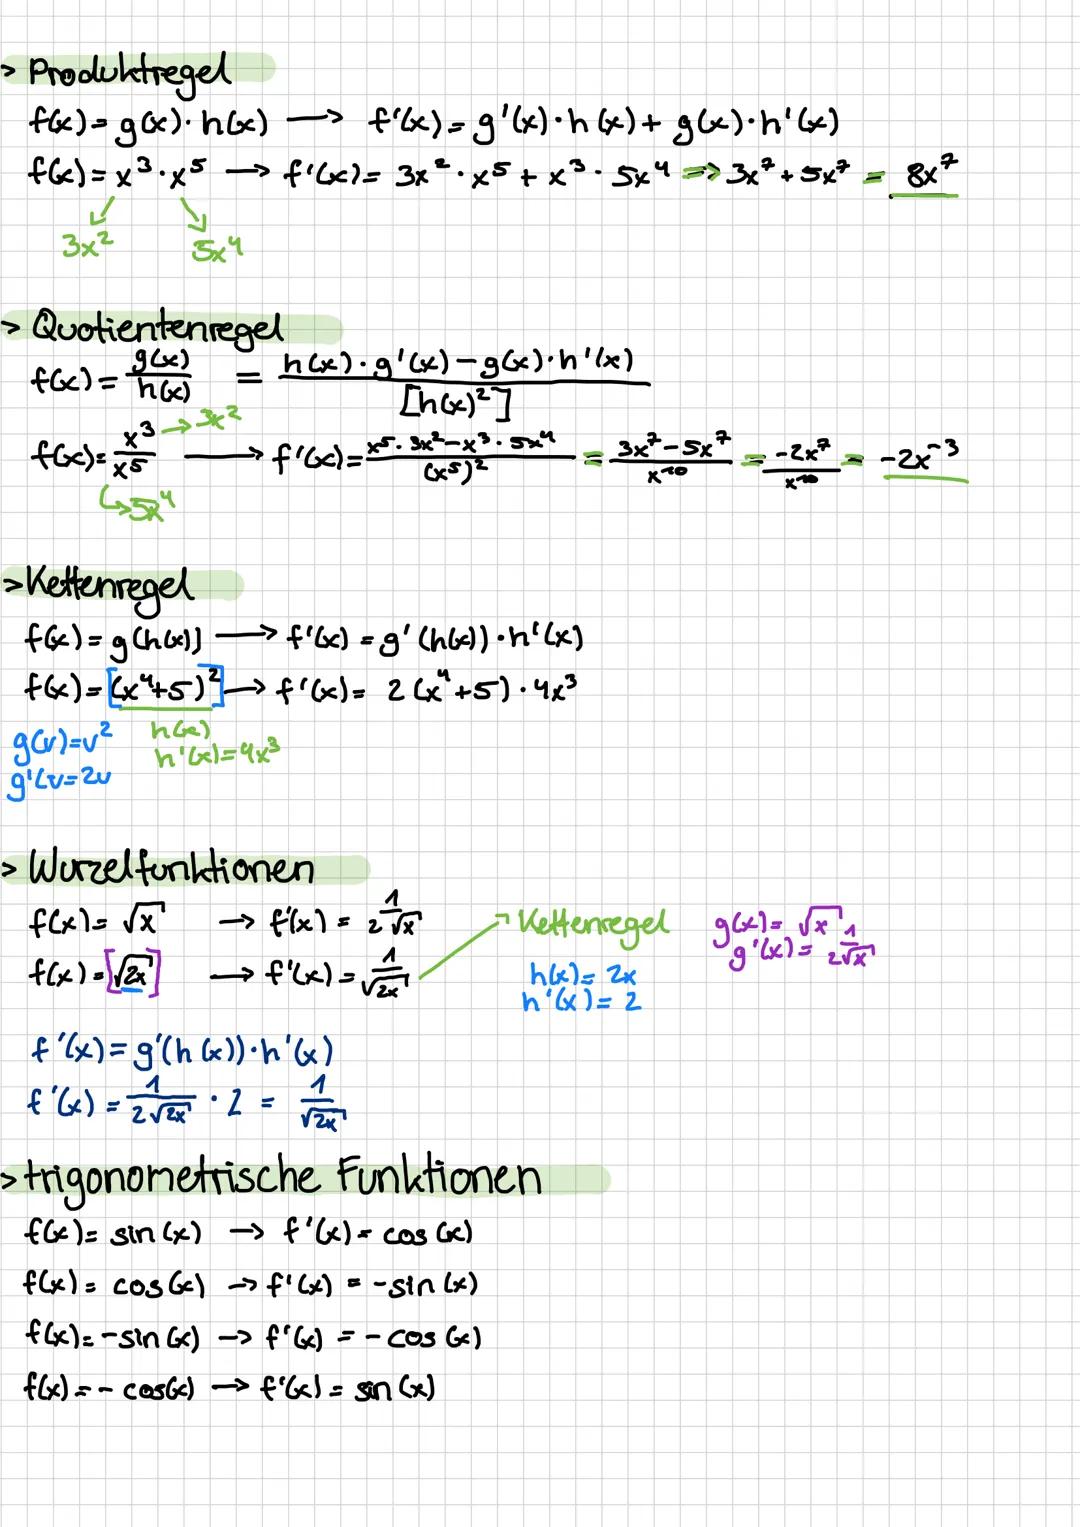 > Produktregel
f(x) = g(x) · h(x) → f'(x) = g'(x) · h(x) + g(x) · h'(x)
f(x) = x³ · x⁵ → f'(x) = 3x² · x⁵ + x³ · 5x⁴ => 3x⁷ + 5x⁷ = 8x⁷
3x² 5x⁴
> Quotientenregel
f(x) = g(x)/h(x) = h(x) · g'(x) – g(x) · h'(x) / [h(x)²]
f(x) = x³/x⁵ → f'(x) = x⁵ · 3x² – x³ · 5x⁴ / (x⁵)² = 3x⁷ – 5x⁷ / x¹⁰ = -2x⁷ / x¹⁰ = -2x⁻³
→ 3x²
↳ 5x⁴
> Kettenregel
f(x) = g(h(x)) → f'(x) = g'(h(x)) · h'(x)
f(x) = [(x⁴+5)²] → f'(x) = 2(x⁴+5) · 4x³
g(v)=v² h(x)
g'(v=2v h'(x)=4x³
> Wurzelfunktionen
f(x) = √x → f'(x) = 1/2√x
f(x) = [√2x] → f'(x) = 1/√2x → Kettenregel g(x) = √x
g'(x) = 1/2√x
h(x) = 2x
h'(x) = 2
f'(x) = g'(h(x)) · h'(x)
f'(x) = 1/2√2x · 2 = 1/√2x
> trigonometrische Funktionen
f(x) = sin(x) → f'(x) = cos(x)
f(x) = cos(x) → f'(x) = -sin(x)
f(x) = -sin(x) → f'(x) = -cos(x)
f(x) = -cos(x) → f'(x) = sin(x)